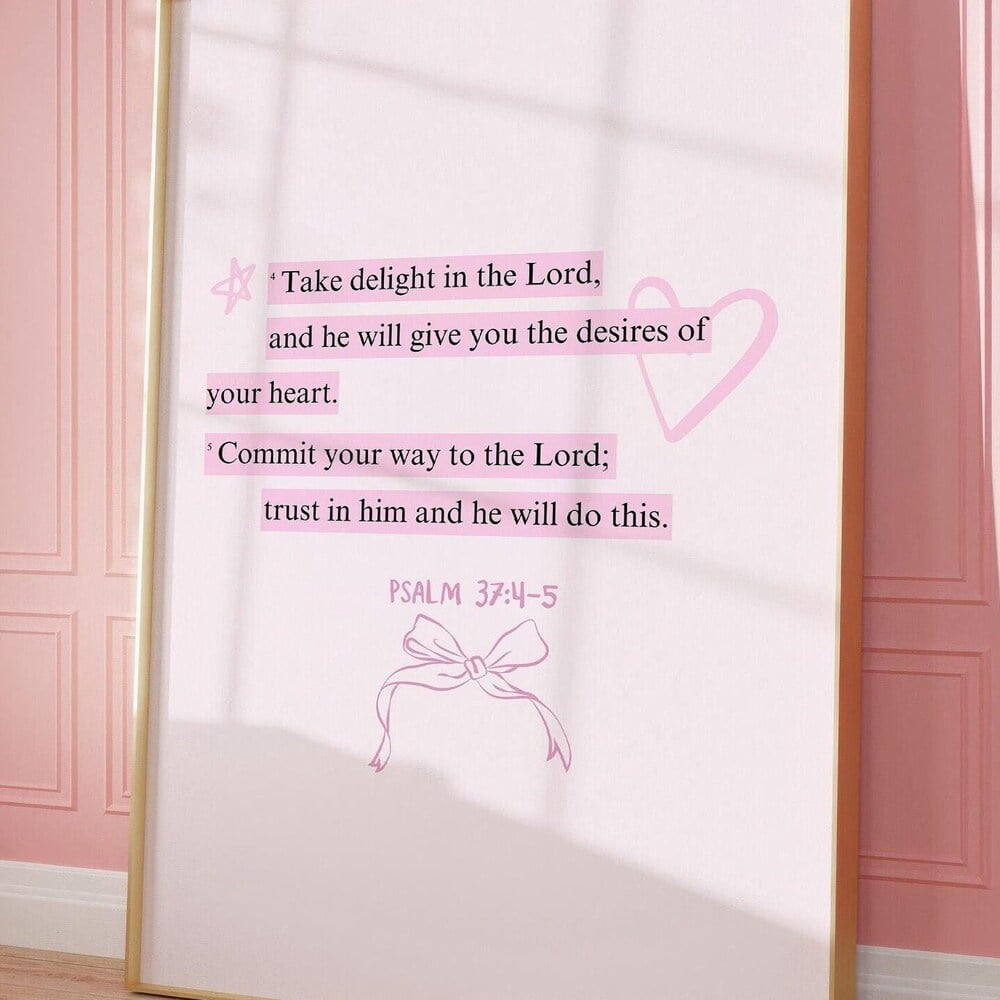 ⁴ Take delight in the Lord,
and he will give you the desires of
your heart.
⁵ Commit your way to the Lord;
trust in him and he will do this.
PSALM 37:4-5